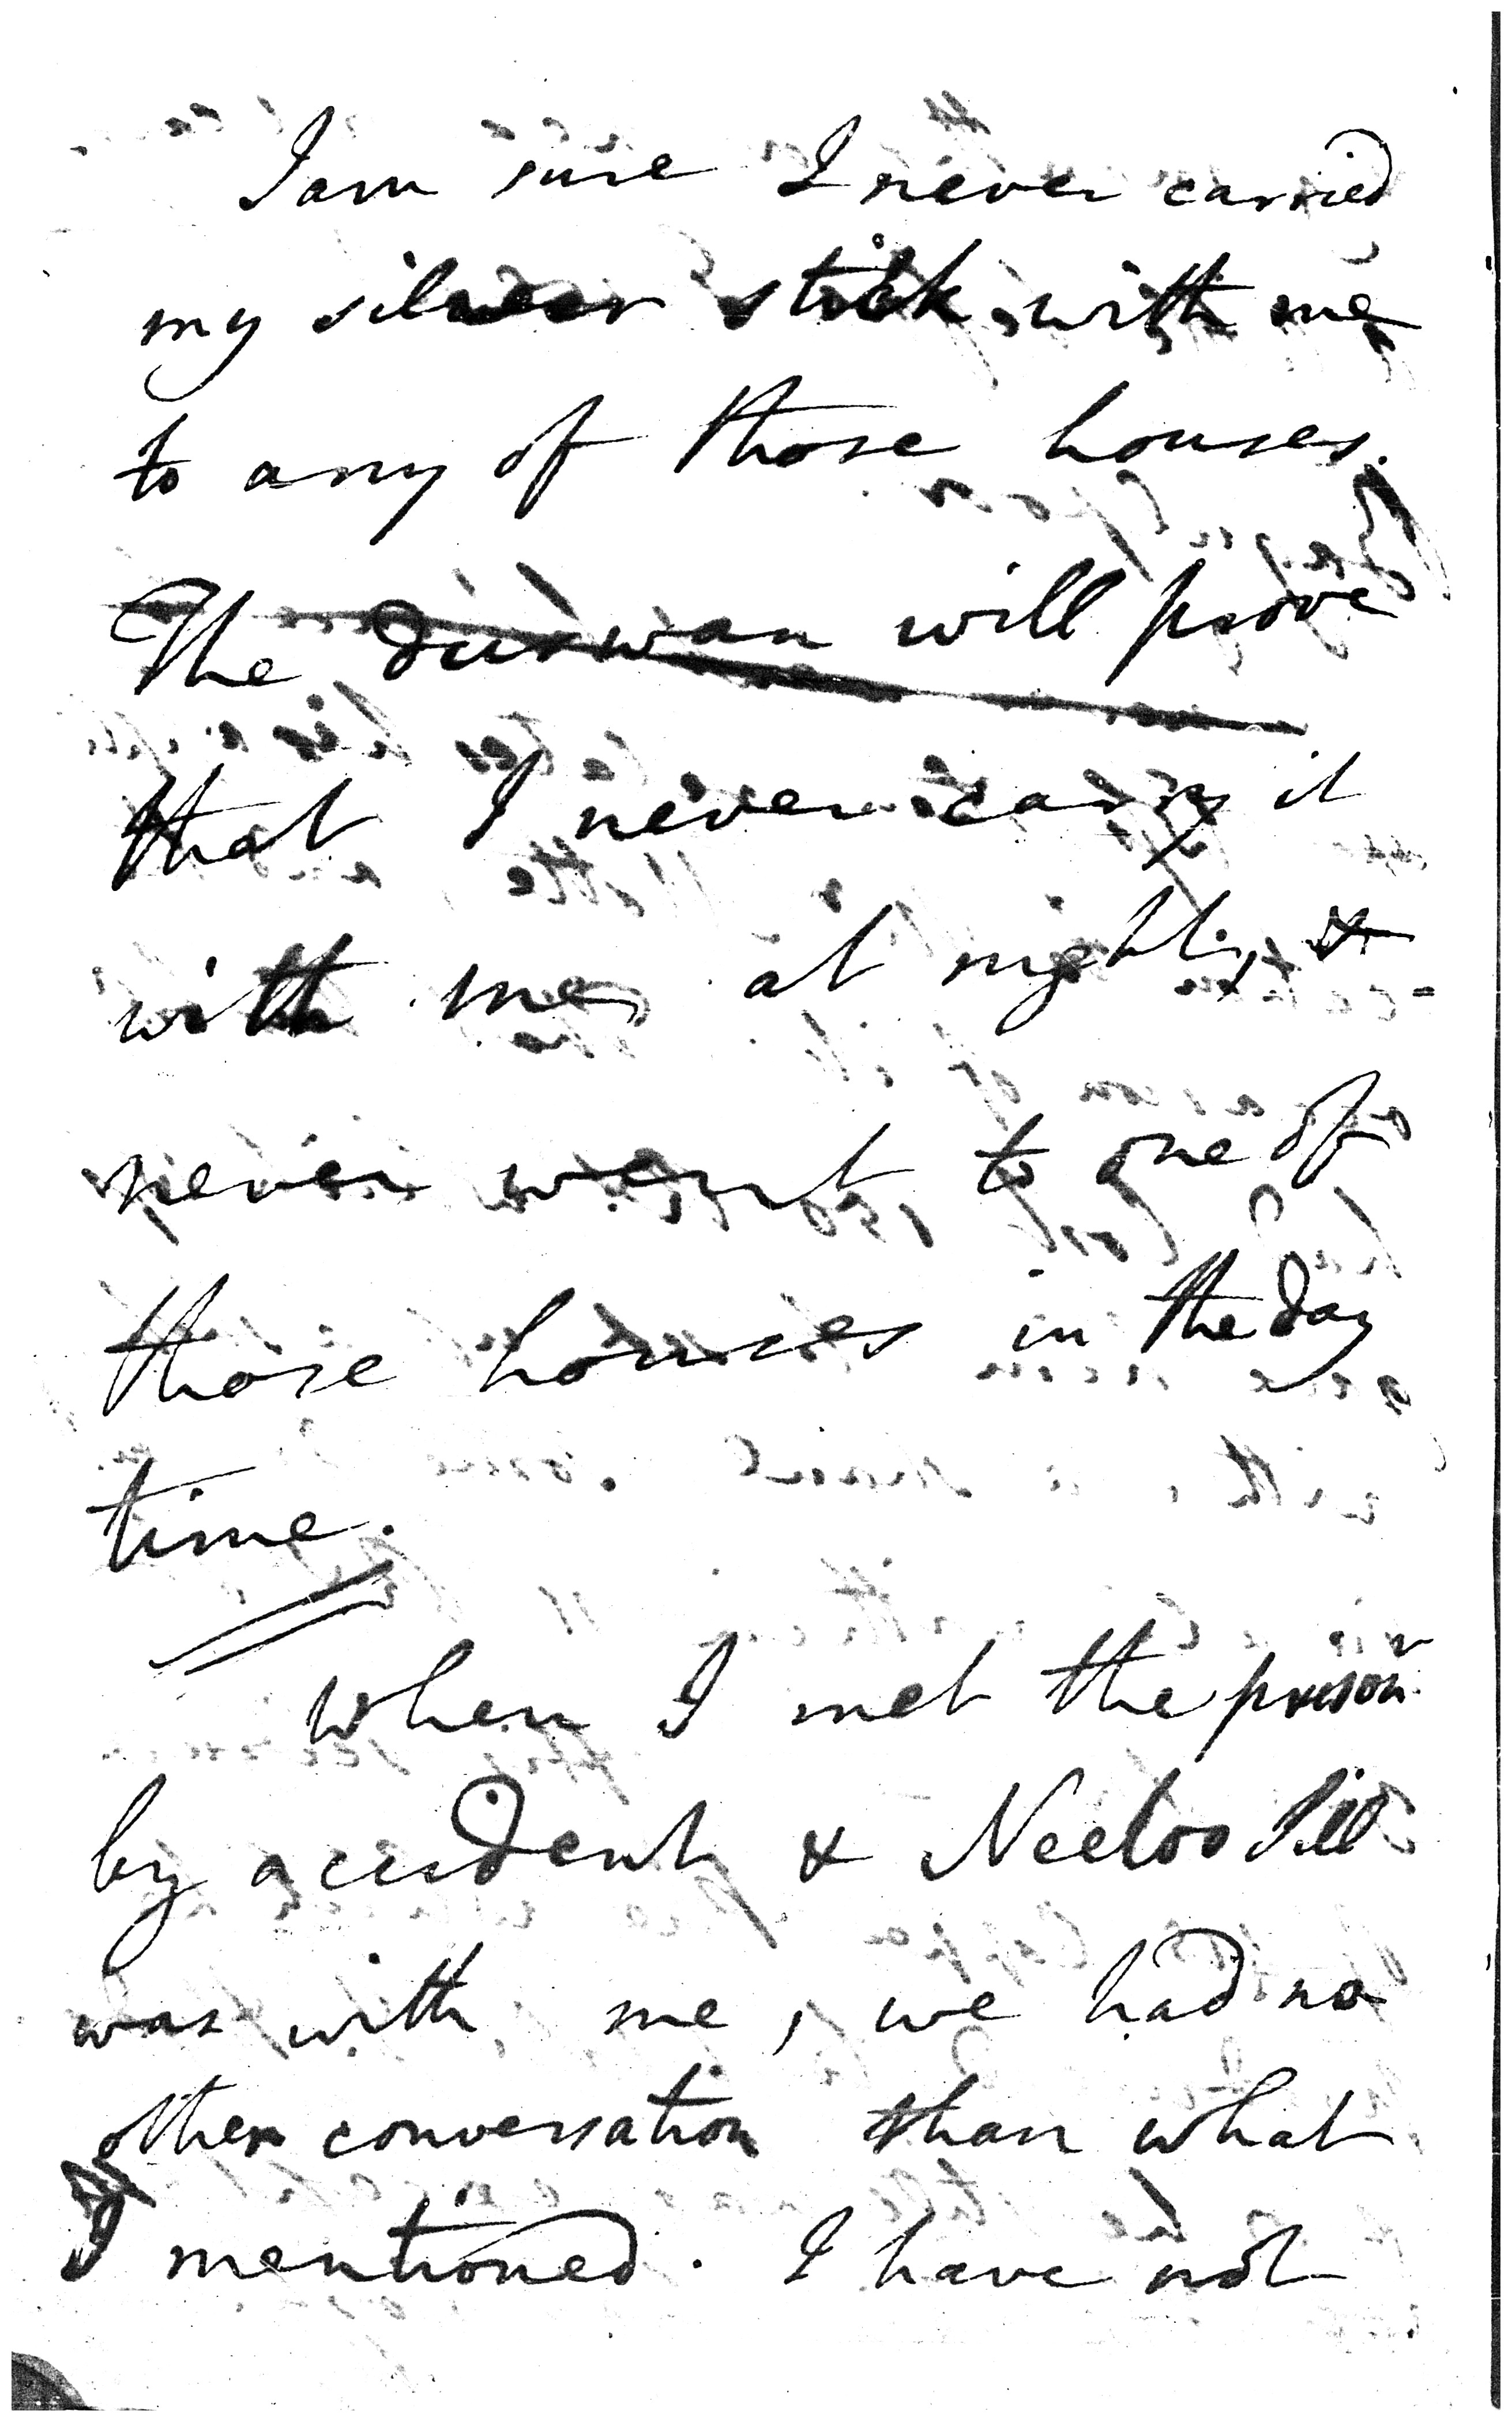 I am sure I never carried
my silver stick with me
to any of those houses.
The durwan will prove
that I never carry it
with me at night, &
never went to one of
those houses in the day
time.
When I met the prisonr
by accident & Neeloo
was with me, we had no
other conversation than what
I mentioned. I have not